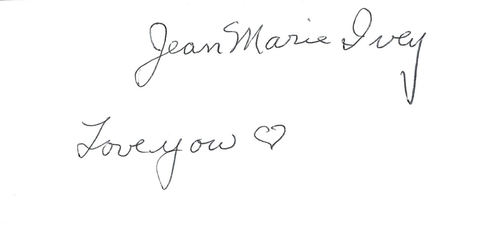 Jean Marie Ivey
Love you ♡